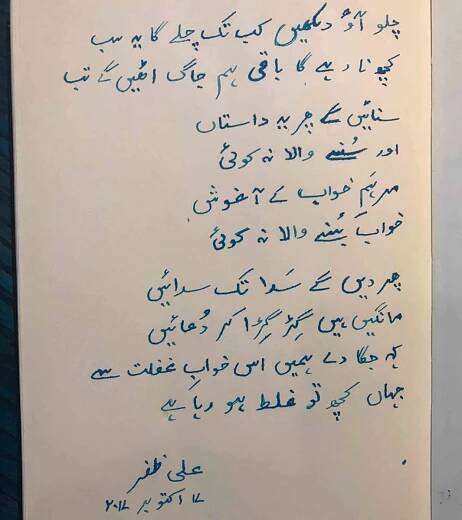 چلو آؤ دیکھیں کب تک چلے گا یہ سب
کچھ نا رہے گا باقی ہم جاگ اٹھیں گے تب
سنائیں گے پھر یہ داستاں
اور سُننے والا نہ کوئی
ہم خواب کے آغوش
خواب بُننے والا نہ کوئی
پھر دیں گے سَدا تک سدائیں
مانگیں ہیں گِڑگِڑا کر دُعائیں
کہ جگا دے ہمیں اس خوابِ غفلت سے
جہاں کچھ تو غلط ہو رہا ہے
علی ظفر
۱۷ اکتوبر ۲۰۱۷